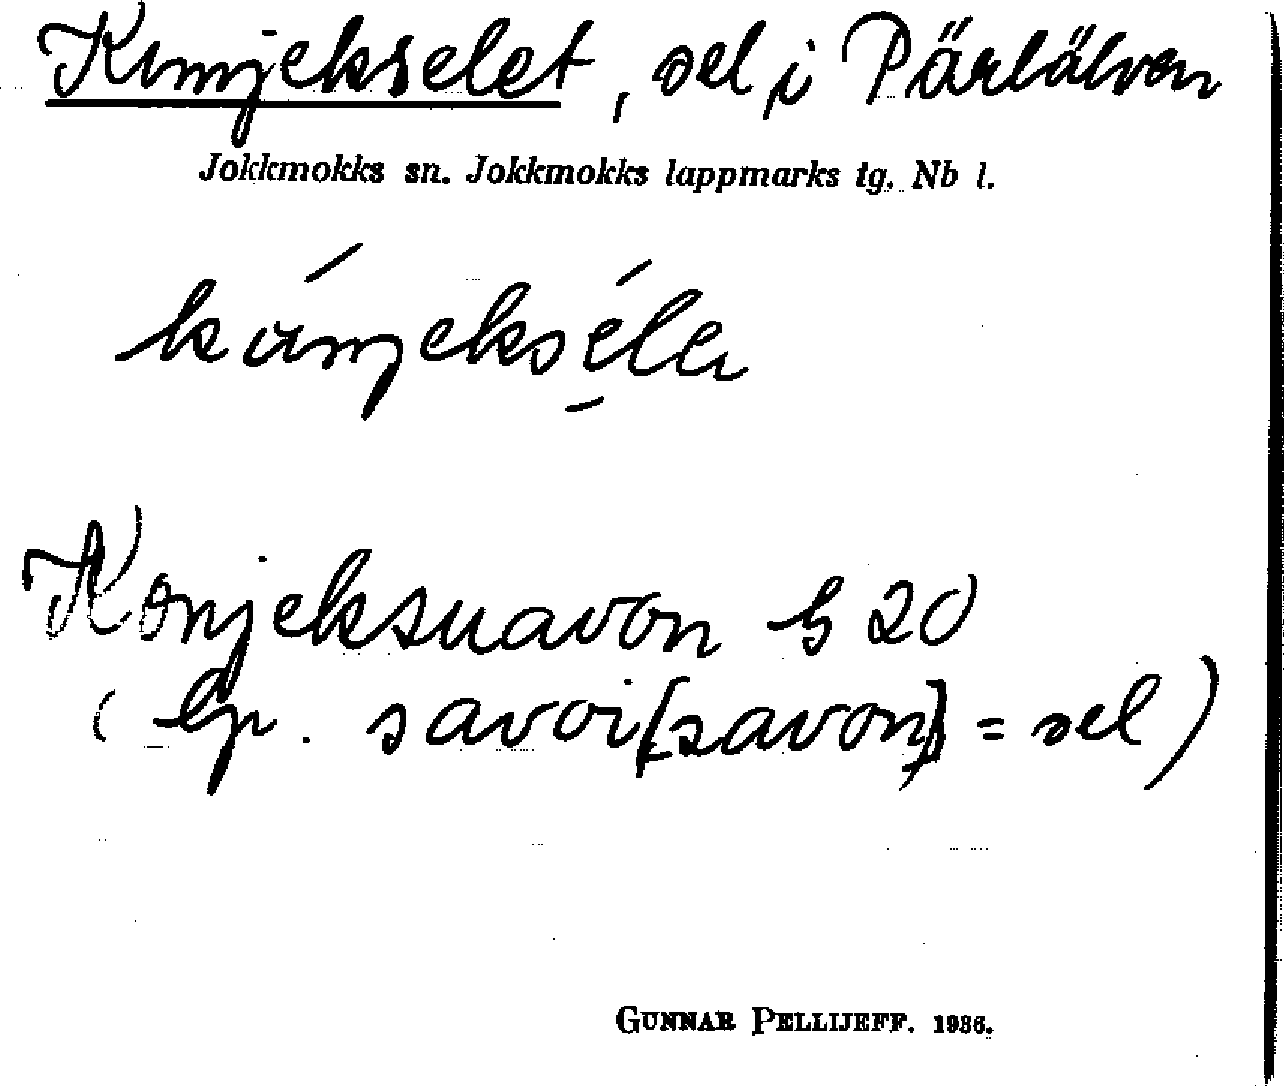 Kunjekselet, sel i Pärlälven
Jokkmokks sn. Jokkmokks lappmarks tg. Nb l.
kúnjekséle̱n
Konjeksuavon b 20
(lp. savoi [savon] = sel)
GUNNAR PELLIJEFF. 1936.